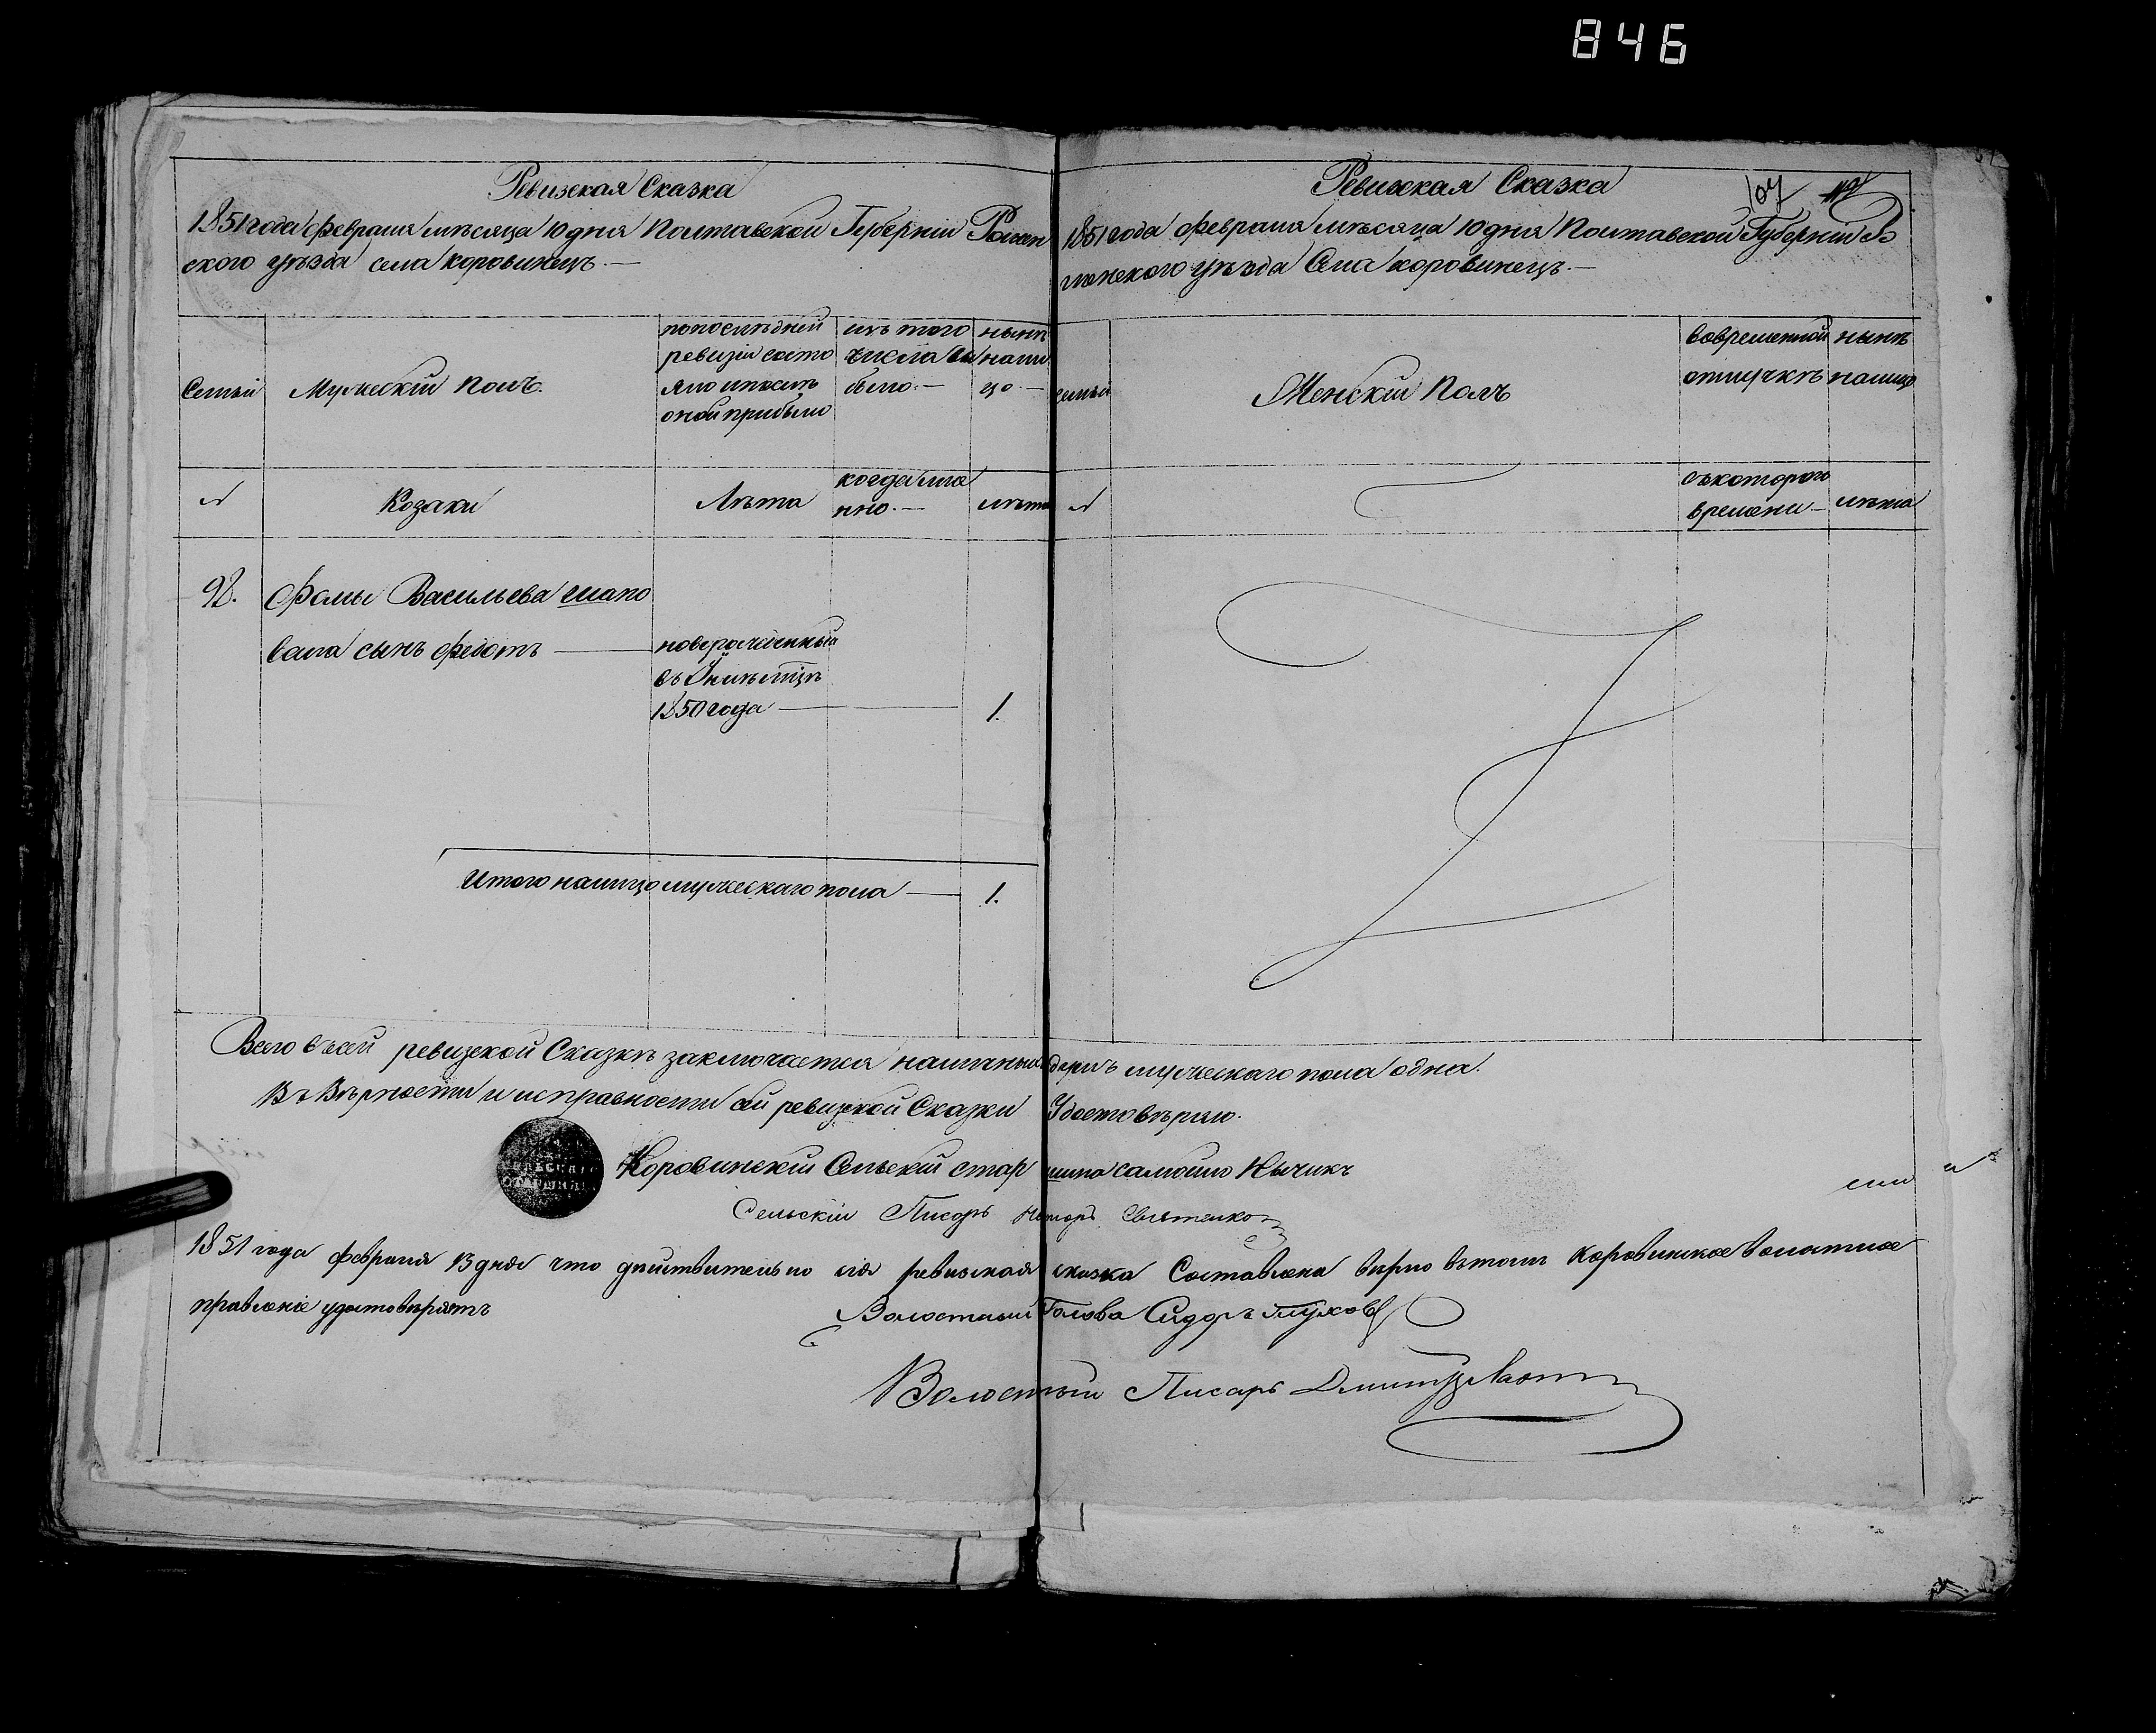 846
Ревизская Сказка
1851 года февраля мѣсяца 10 дня Полтавской Губерніи Ромен
ского уѣзда села Коровинецъ. —
Семьи
Мужеский Полъ.
по последней
ревизіи состо
яло и послѣ
оной прибыло
изъ того
числа вы
было. —
нынѣ
нали
цо. —
№
Козаки
Лѣта
когда име
нно. —
лѣта
92. Фомы Васильева шапо
вала сынъ Федотъ —
новорожденный
въ
1850 года — 1.
Итого налицо мужескаго пола — 1.
Ревизская Сказка
107
1851 года февраля мѣсяца 10 дня Полтавской Губерніи Ро
менского уѣзда Села Коровинецъ. —
семьи
Женский Полъ
во временной
отлучкѣ
нынѣ
налицо
№
съ которого
времени —
лѣта
Всего въ сей ревизской Сказкѣ заключается наличныхъ душъ мужескаго пола одна.
Въ Вѣрности и исправности сей ревизкой Сказки Удостовѣряю.
Коровинскій Сельскій старшина самойло
Сельскій Писарь
1851 года февраля 13 дня что дѣйствительно сія ревизская сказка Составлена вѣрно въ томъ Коровинское волостное
правленіе удостовѣряетъ
Волостный Голова Сидоръ
Волостный Писарь